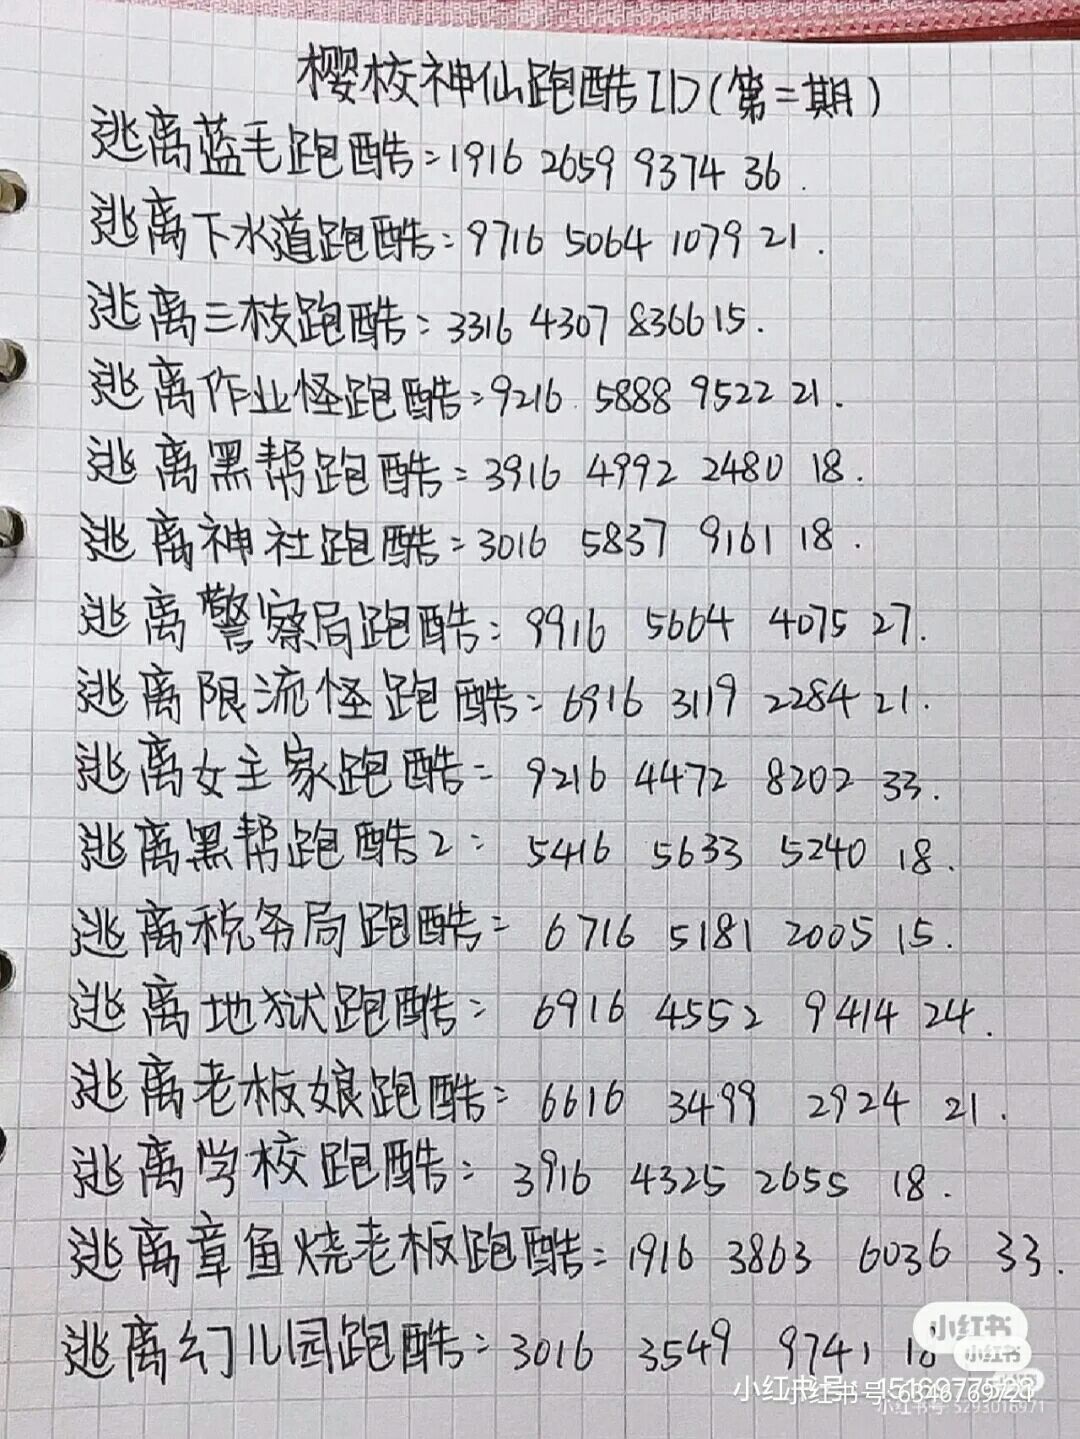 樱校神仙跑酷ID(第二期)
逃离蓝毛跑酷:1916 2659 9374 36.
逃离下水道跑酷:9716 5064 1079 21.
逃离三枝跑酷:3316 4307 8366 15.
逃离作业怪跑酷:9216 5888 9522 21.
逃离黑帮跑酷:3916 4992 2480 18.
逃离神社跑酷:3016 5837 9161 18.
逃离警察局跑酷:9916 5664 4075 27.
逃离限流怪跑酷:6916 3119 2284 21.
逃离女主家跑酷:9216 4472 8202 33.
逃离黑帮跑酷2:5416 5633 5240 18.
逃离税务局跑酷:6716 5181 2005 15.
逃离地狱跑酷:6916 4552 9414 24.
逃离老板娘跑酷:6616 3499 2924 21.
逃离学校跑酷:3916 4325 2655 18.
逃离章鱼烧老板跑酷:1916 3863 6036 33.
逃离幻儿园跑酷:3016 3549 9741 18
小红书
小红书
小红书号:
小红书号:6346769721
小红书号:5293016971